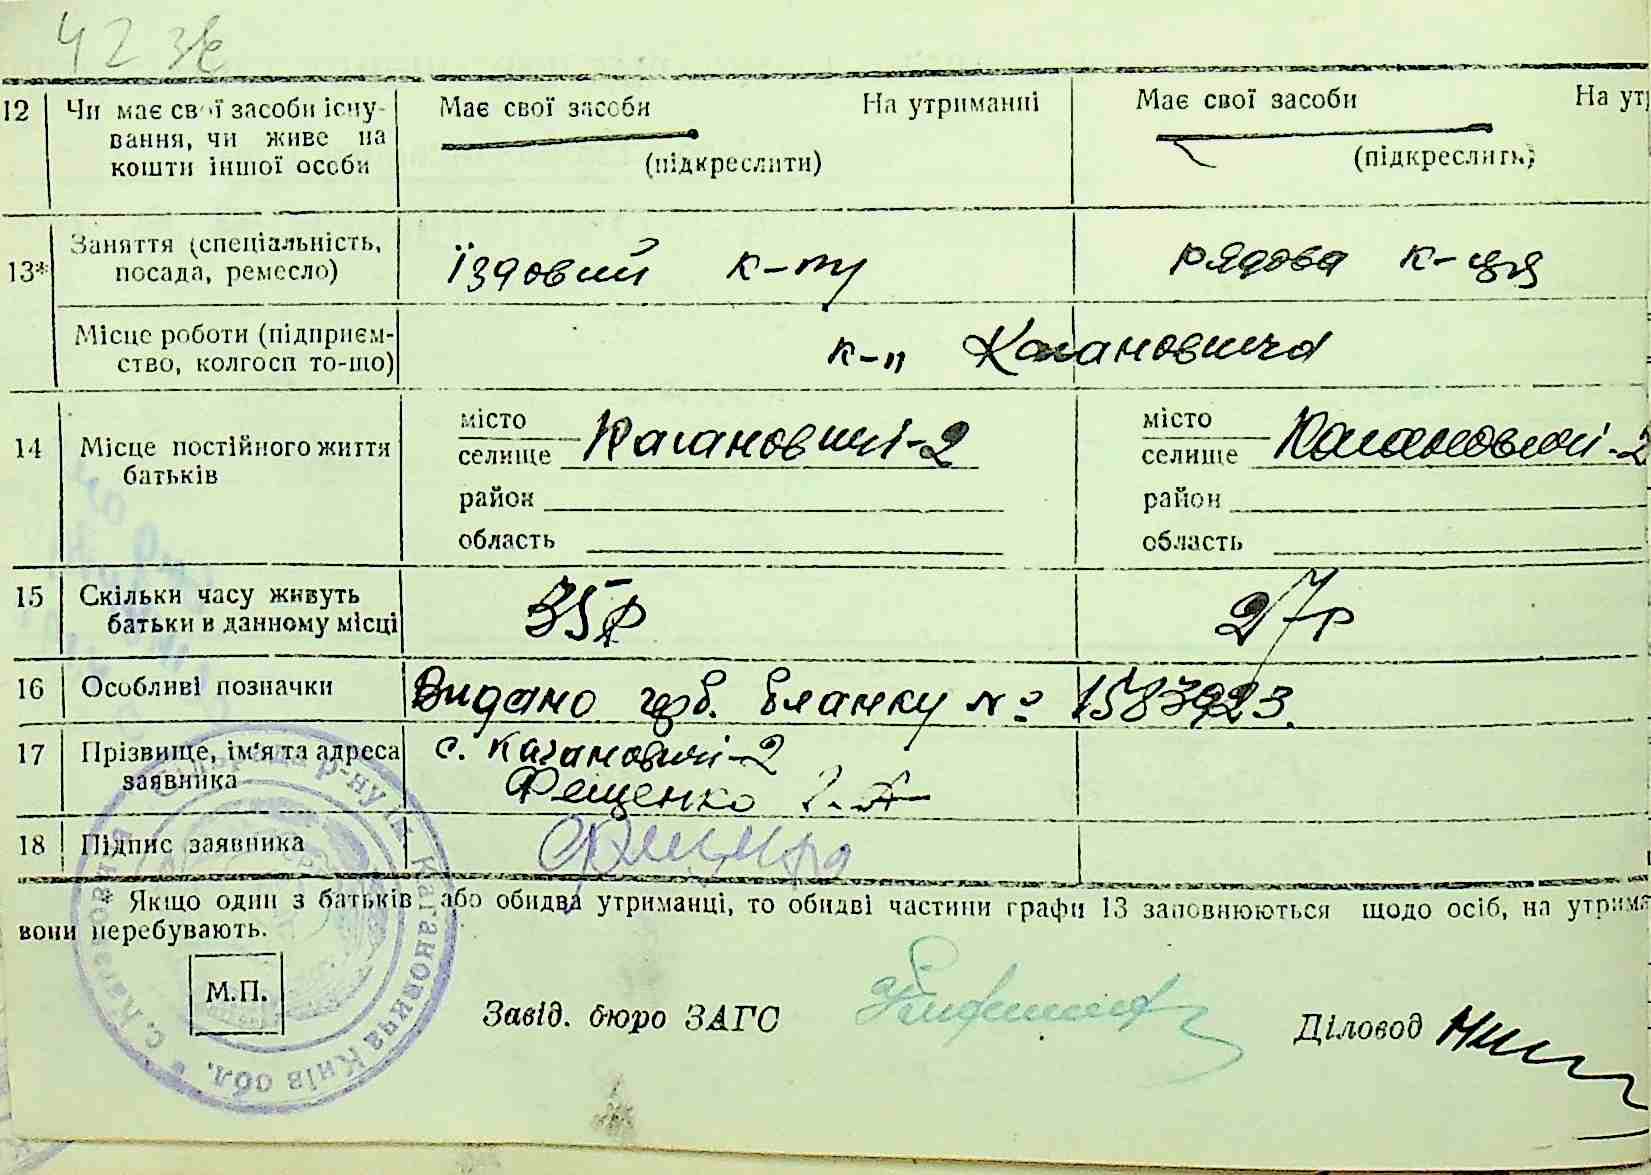 42 зв
12 Чи має свої засоби існу-
вання, чи живе на
кошти іншої особи
Має свої засоби На утриманні
(підкреслити)
Має свої засоби На ут
(підкреслить)
13* Заняття (спеціальність,
посада, ремесло)
їздовий к-пу
рядова к-ця
Місце роботи (підприєм-
ство, колгосп то-що)
к-п Кагановича
14 Місце постійного життя
батьків
місто
селище Кагановичі-2
район
область
місто
селище Кагановичі-2
район
область
15 Скільки часу живуть
батьки в данному місці
35 р
27 р
16 Особливі позначки
Видано герб. бланку № 1583923.
17 Прізвище, ім'я та адреса
заявника
с. Кагановичі-2
Фещенко І. А
18 Підпис заявника
* Якщо один з батьків або обидва утриманці, то обидві частини графи 13 заповнюються щодо осіб, на утрима
вони перебувають.
М.П.
Завід. бюро ЗАГС
Діловод
р-ну ім. Кагановича Київ обл.